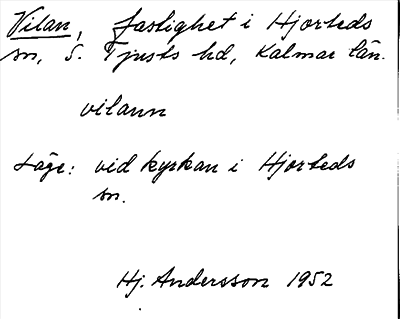 Vilan, fastighet i Hjorteds
sn, S. Tjusts hd, Kalmar län.
vilann
Läge: vid kyrkan i Hjorteds
sn.
Hj. Andersson 1952